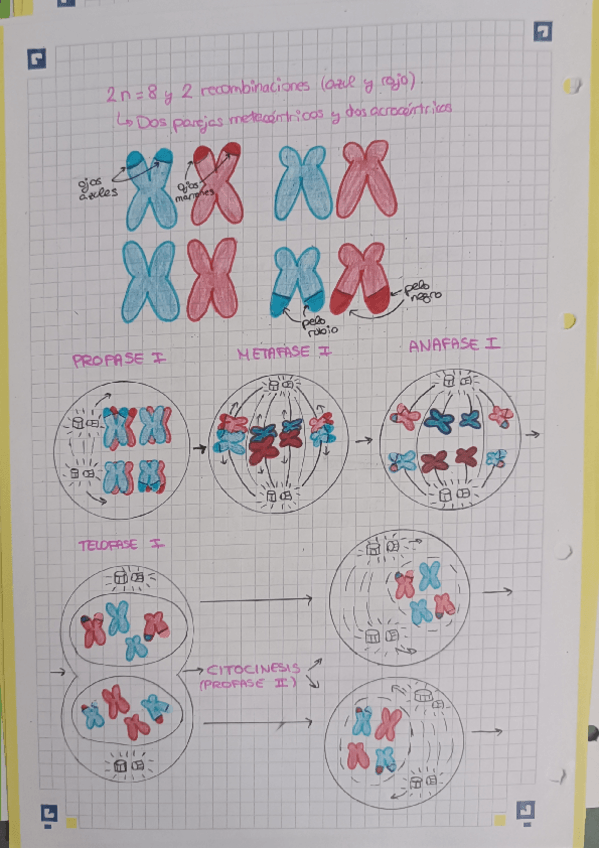 2n=8 y 2 recombinaciones (azul y rojo).
↳ Dos parejas metacéntricas y dos acrocéntricas
ojos azules
ojos marrones
pelo rubio
pelo negro
PROFASE I
METAFASE I
ANAFASE I
TELOFASE I
CITOCINESIS
(PROFASE II)